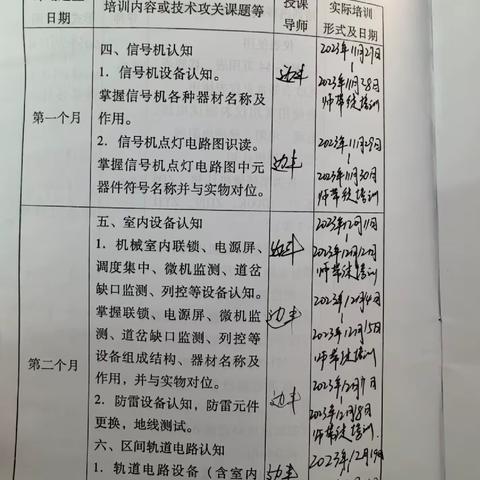 日期
培训内容或技术攻关课题等
授课
导师
实际培训
形式及日期
第一个月
四、信号机认知
1．信号机设备认知。
掌握信号机各种器材名称及
作用。
2．信号机点灯电路图识读。
掌握信号机点灯电路图中元
器件符号名称并与实物对位。
边丰
边丰
2023年11月27日
2023年11月28日
师带徒培训
2023年11月29日
2023年11月30日
师带徒培训
第二个月
五、室内设备认知
1．机械室内联锁、电源屏、
调度集中、微机监测、道岔
缺口监测、列控等设备认知。
掌握联锁、电源屏、微机监
测、道岔缺口监测、列控等
设备组成结构、器材名称及
作用，并与实物对位。
2．防雷设备认知，防雷元件
更换，地线测试。
六、区间轨道电路认知
1．轨道电路设备（含室内
边丰
边丰
边丰
边丰
2023年12月1日
师带徒培训
2023年12月4日
2023年12月15日
师带徒培训
2023年12月18日
师带徒培训
2023年12月19日